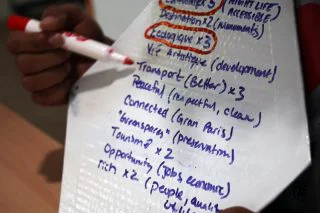 (NIGHT LIFE
ACCESSIBLE)
Destination x2 (Monuments)
Ecologique x3
Vie Artistique (development)
Transport (Better) x3
Peaceful (respectful, clean)
Connected (Gran Paris)
"Greenspaces" (preservation)
Tourism x2
Opportunity (jobs, economic)
rich x2 (people,